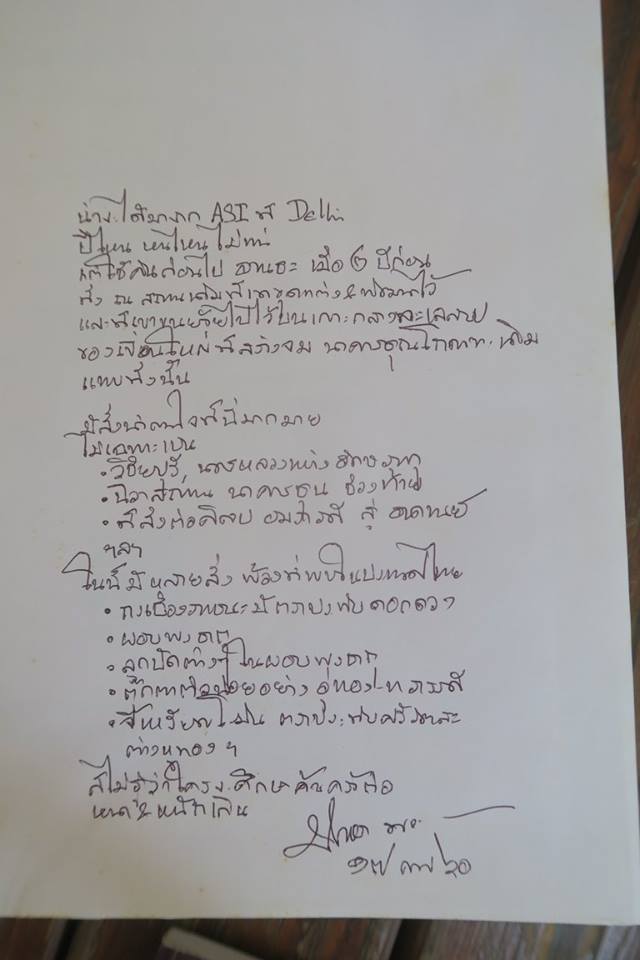 น่าจะได้มาจาก ASI ที่ Delhi
ปีไหน หนไหน ไม่ทน
เมื่อ ๒ ปีก่อน
ส่ง ณ สถานเดิมที่เขาขุดแต่ง & พัฒนาไว้
และที่เขาขนย้ายไปไว้บนเกาะกลางทะเลสาบ
ของเขื่อนใหญ่ที่สร้างจม นาคารชุนโกณฑะ เดิม
แทบทั้งนั้น
มีสิ่งน่าสนใจที่นี่มากมาย
ไม่เฉพาะเป็น
• วิชัยปุรี, นครหลวงแห่งอิกษวากุ
• นิวาสสถาน นาคารชุน ช่วงท้าย
• ที่ส่งต่อศิลปะ อมราวดี สู่ อานาทวีป
ฯลฯ
ในนี้มีหลายสิ่ง พ้องที่พบในประเทศไทย
• มีตราประทับดอกดวง
• ผอบพระธาตุ
• ลูกปัดต่างๆ ในผอบพระธาตุ
• ตุ๊กตาตัวน้อยอย่าง อู่ทอง-ทวาราวดี
• จี้เหรียญโรมัน ตราประทับศรีวัตสะ
ต่างหูทอง ฯ
ก็ไม่รู้ว่าใครจะศึกษาค้นคว้าต่อ
เหนื่อย & หนักเกิน
๑๗ ๓๗ ๖๐